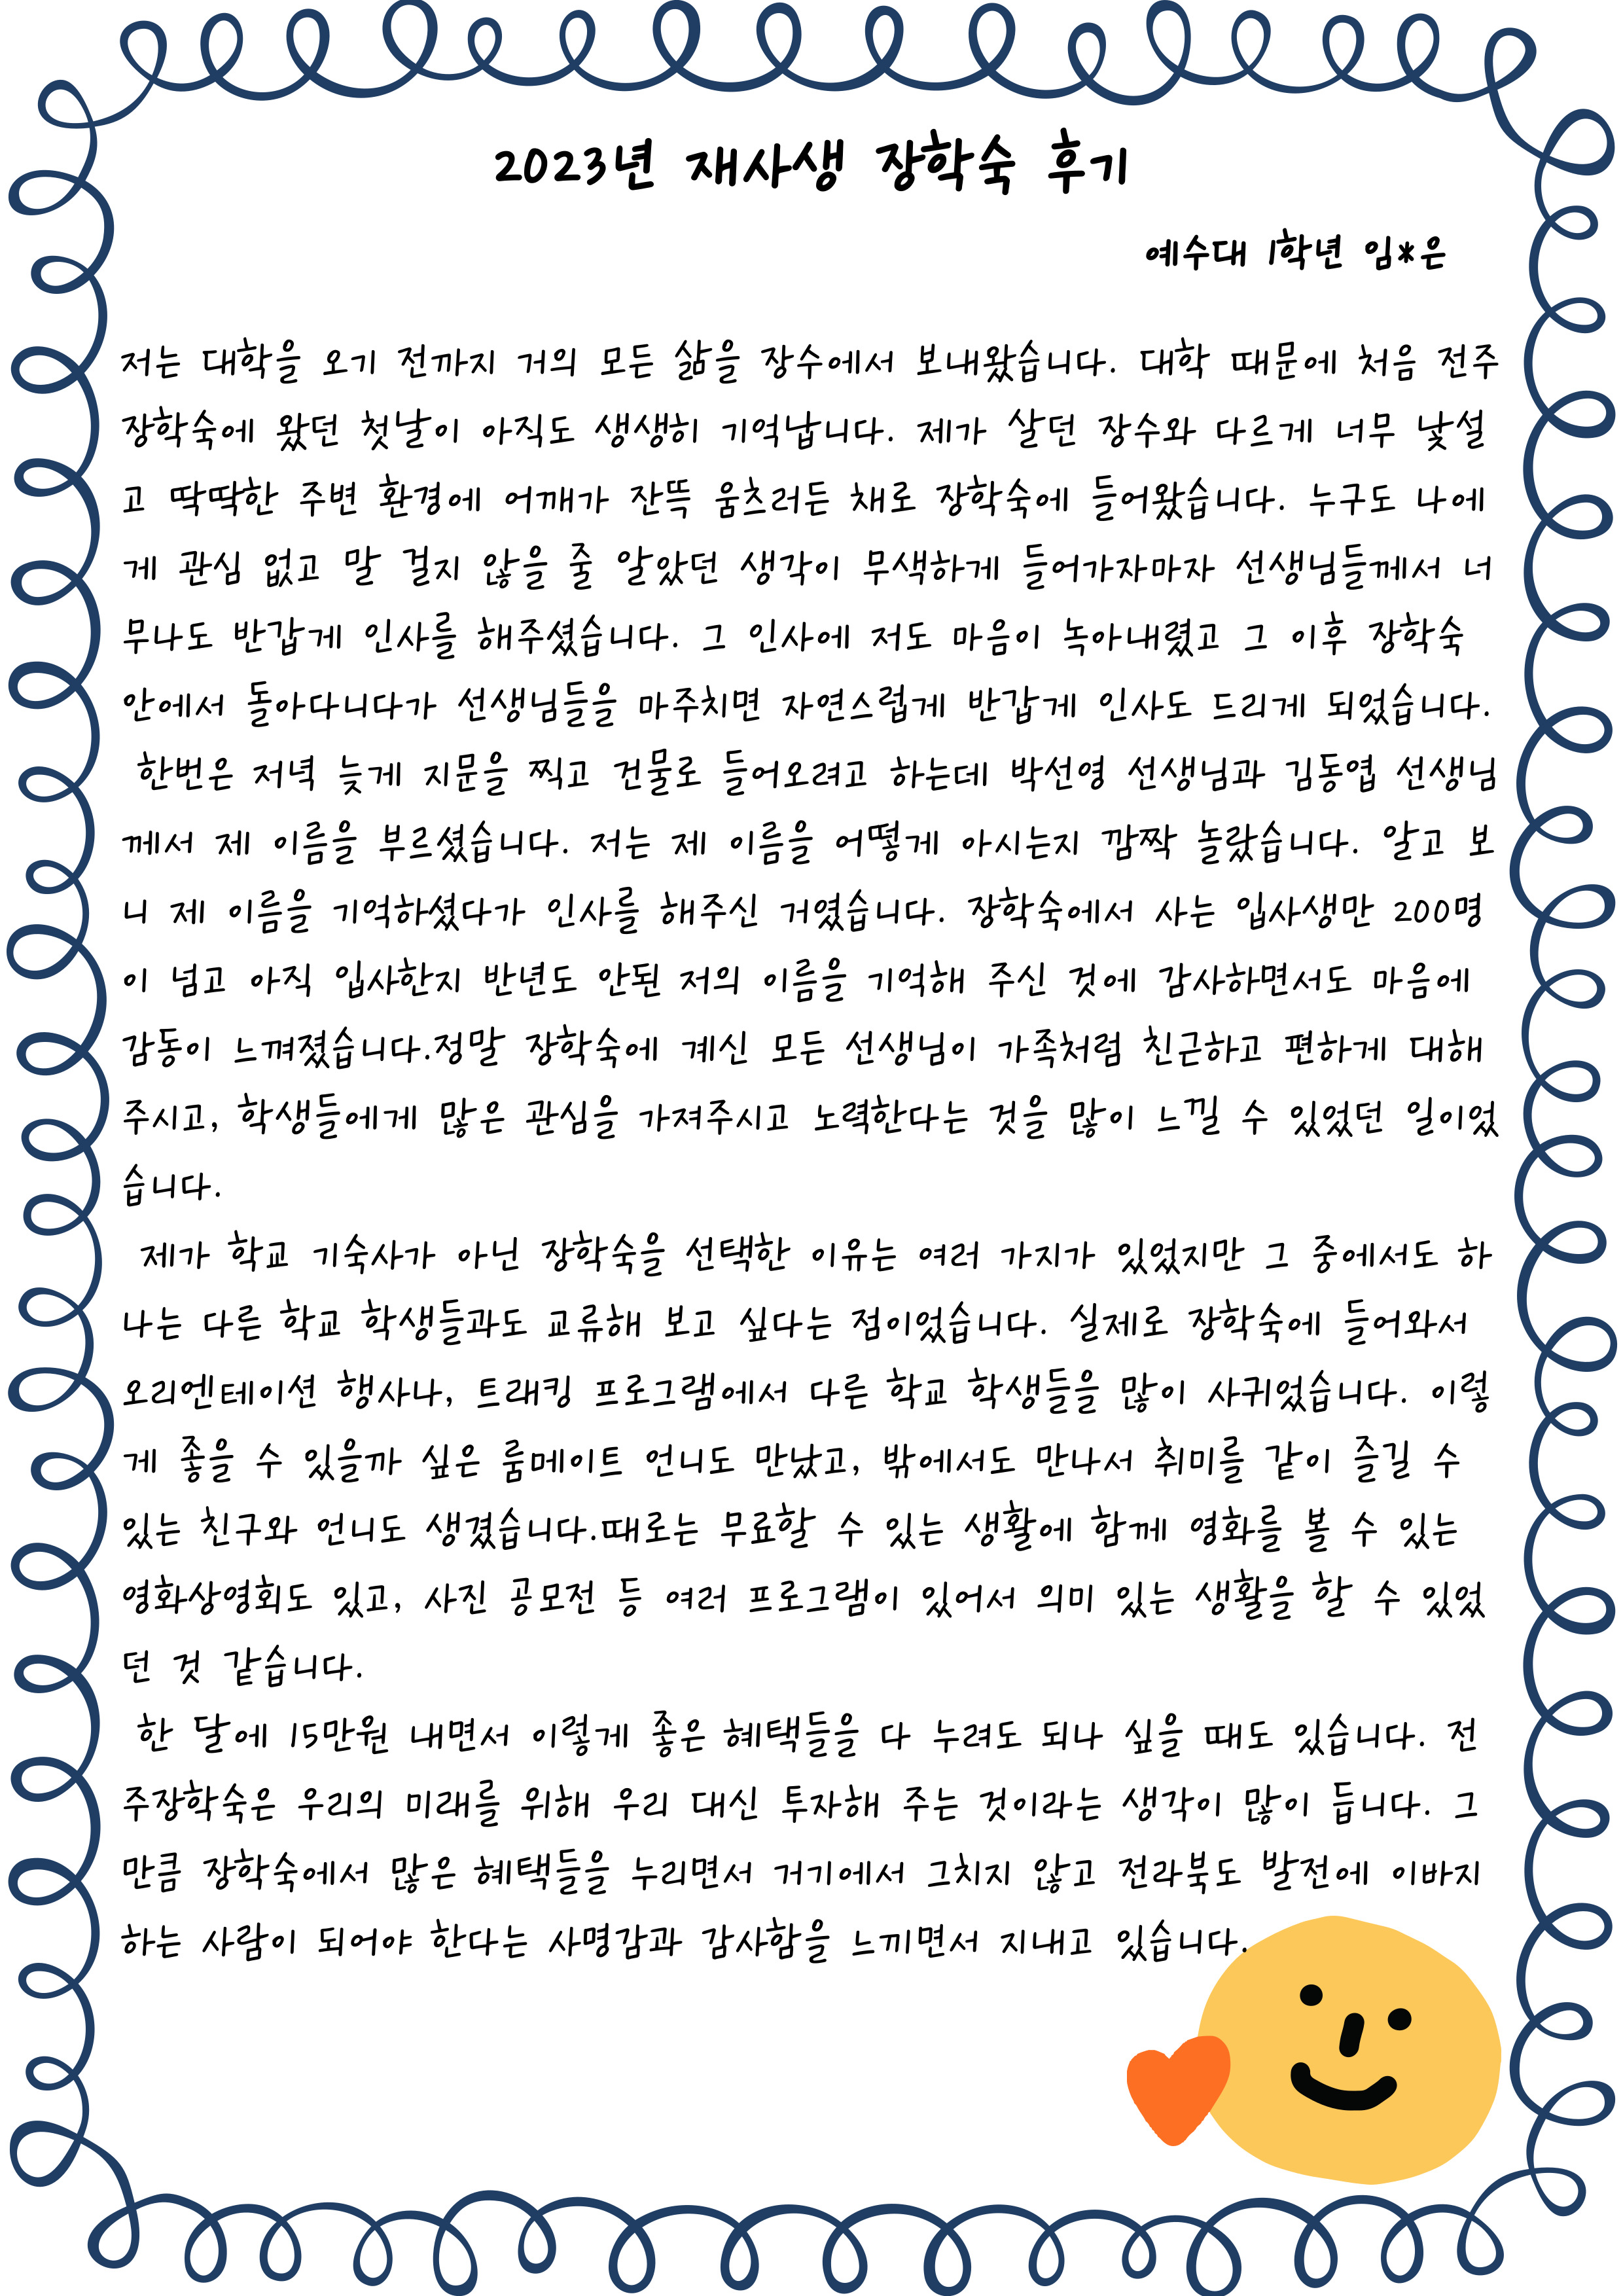 2023년 재사생 장학숙 후기
예수대 1학년 임*은
저는 대학을 오기 전까지 거의 모든 삶을 장수에서 보내왔습니다. 대학 때문에 처음 전주
장학숙에 왔던 첫날이 아직도 생생히 기억납니다. 제가 살던 장수와 다르게 너무 낯설
고 딱딱한 주변 환경에 어깨가 잔뜩 움츠러든 채로 장학숙에 들어왔습니다. 누구도 나에
게 관심 없고 말 걸지 않을 줄 알았던 생각이 무색하게 들어가자마자 선생님들께서 너
무나도 반갑게 인사를 해주셨습니다. 그 인사에 저도 마음이 녹아내렸고 그 이후 장학숙
안에서 돌아다니다가 선생님들을 마주치면 자연스럽게 반갑게 인사도 드리게 되었습니다.
한번은 저녁 늦게 지문을 찍고 건물로 들어오려고 하는데 박선영 선생님과 김동엽 선생님
께서 제 이름을 부르셨습니다. 저는 제 이름을 어떻게 아시는지 깜짝 놀랐습니다. 알고 보
니 제 이름을 기억하셨다가 인사를 해주신 거였습니다. 장학숙에서 사는 입사생만 200명
이 넘고 아직 입사한지 반년도 안된 저의 이름을 기억해 주신 것에 감사하면서도 마음에
감동이 느껴졌습니다.정말 장학숙에 계신 모든 선생님이 가족처럼 친근하고 편하게 대해
주시고, 학생들에게 많은 관심을 가져주시고 노력한다는 것을 많이 느낄 수 있었던 일이었
습니다.
제가 학교 기숙사가 아닌 장학숙을 선택한 이유는 여러 가지가 있었지만 그 중에서도 하
나는 다른 학교 학생들과도 교류해 보고 싶다는 점이었습니다. 실제로 장학숙에 들어와서
오리엔테이션 행사나, 트래킹 프로그램에서 다른 학교 학생들을 많이 사귀었습니다. 이렇
게 좋을 수 있을까 싶은 룸메이트 언니도 만났고, 밖에서도 만나서 취미를 같이 즐길 수
있는 친구와 언니도 생겼습니다.때로는 무료할 수 있는 생활에 함께 영화를 볼 수 있는
영화상영회도 있고, 사진 공모전 등 여러 프로그램이 있어서 의미 있는 생활을 할 수 있었
던 것 같습니다.
한 달에 15만원 내면서 이렇게 좋은 혜택들을 다 누려도 되나 싶을 때도 있습니다. 전
주장학숙은 우리의 미래를 위해 우리 대신 투자해 주는 것이라는 생각이 많이 듭니다. 그
만큼 장학숙에서 많은 혜택들을 누리면서 거기에서 그치지 않고 전라북도 발전에 이바지
하는 사람이 되어야 한다는 사명감과 감사함을 느끼면서 지내고 있습니다.